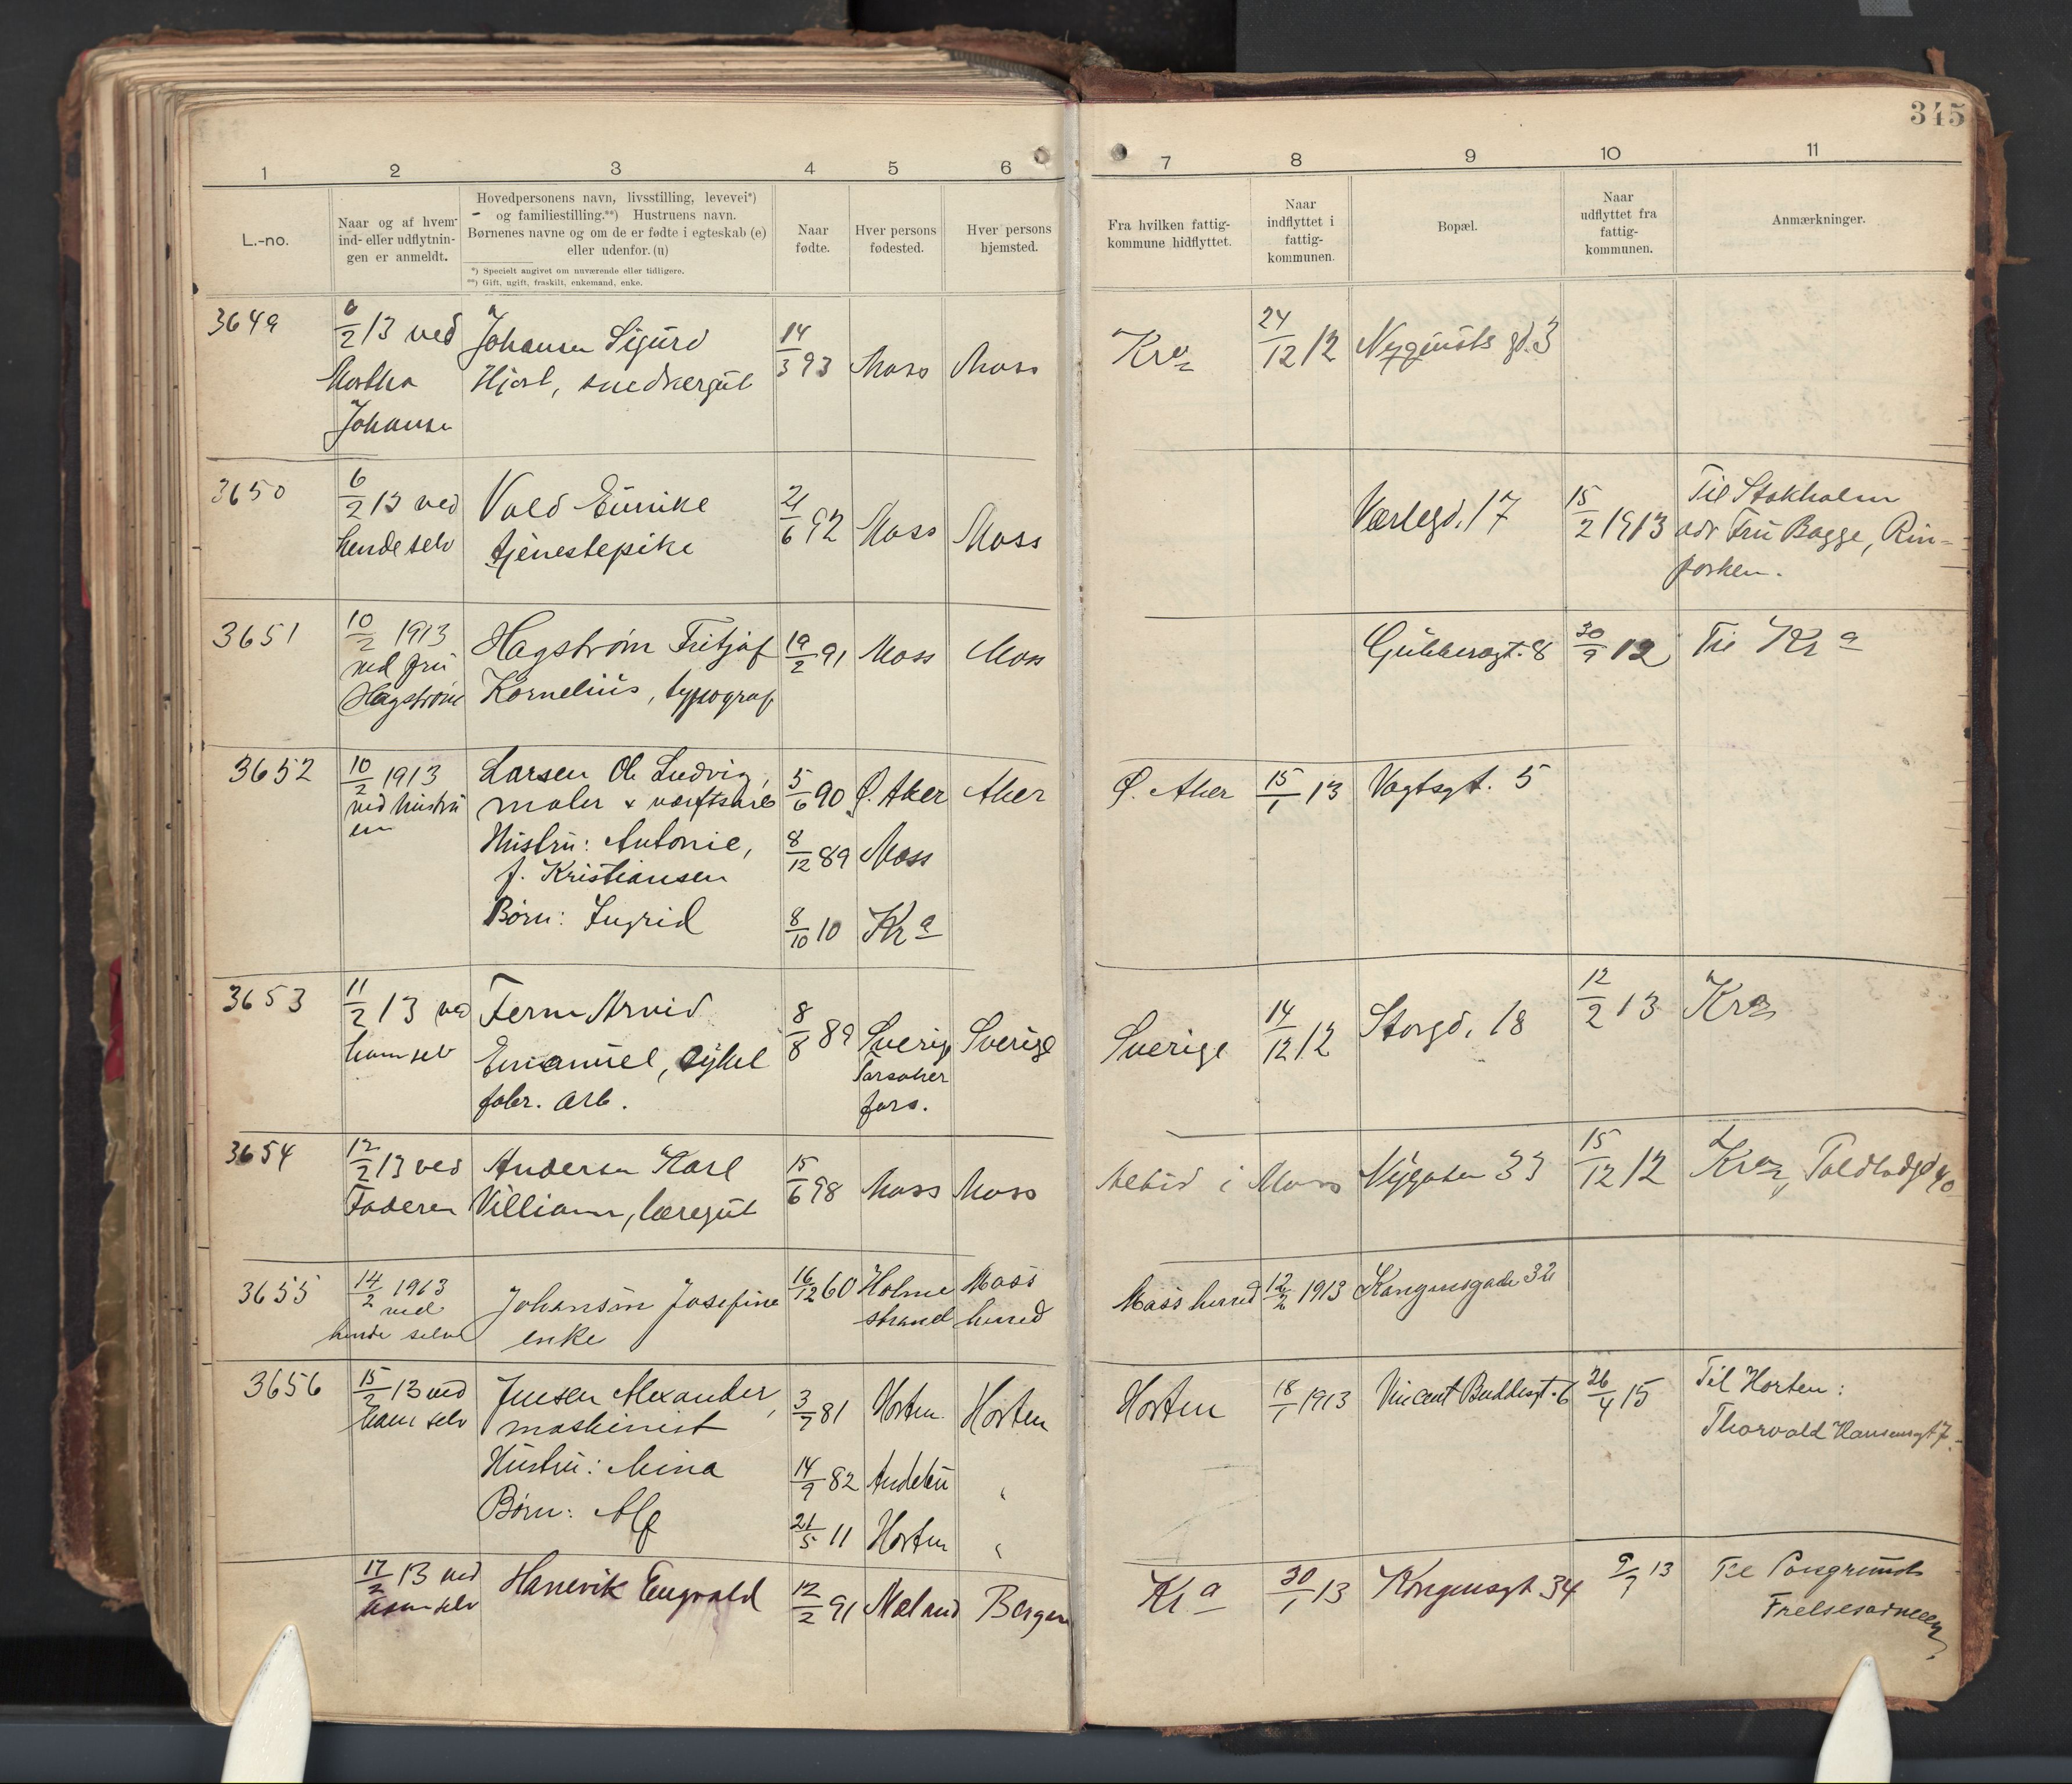 345
1 2 3 4 5 6 7 8 9 10 11
L.-no.
Naar og af hvem
ind- eller udflytnin-
gen er anmeldt.
Hovedpersonens navn, livsstilling, levevei*)
og familiestilling.**) Hustruens navn.
Børnenes navne og om de er fødte i egteskab (e)
eller udenfor. (u)
*) Specielt angivet om nuværende eller tidligere.
**) Gift, ugift, fraskilt, enkemand, enke.
Naar
fødte.
Hver persons
fødested.
Hver persons
hjemsted.
Fra hvilken fattig-
kommune hidflyttet.
Naar
indflyttet i
fattig-
kommunen.
Bopæl.
Naar
udflyttet fra
fattig-
kommunen.
Anmærkninger.
3649 6/2 13 ved Johansen Sigurd 14/3 93 Moss Moss Kra 24/12 12 gd. 3
Martha Hjort, snedkergut
Johansen
3650 6/2 13 ved Vold Eunike 21/6 92 Moss Moss Værlegd. 17 15/2 1913 Til Stokholm
hende selv tjenestepike adr Fru Bagge, Rin-
3651 10/2 1913 Hagstrøm Fritjof 19/2 91 Moss Moss Gubberogt. 8 30/9 12 Til Kra
ved fru Kornelius, typograf
Hagstrøm
3652 10/2 1913 Larsen Ole Ludvig, 5/6 90 Ø. Aker Aker Ø. Aker 15/1 13 Vogtsgt. 5
ved hustru maler & værftsarb
en Hustru: Antonie, 8/12 89 Moss
f. Kristiansen
Børn: Ingrid 8/10 10 Kra
3653 11/2 13 ved Ferm Arvid 8/8 89 Sverige Sverige Sverige 14/12 12 Storgd. 18 12/2 13 Kra
ham selv Emanuel, sykel Torsaker
fabr. arb. fors.
3654 12/2 13 ved Andersen Karl 15/6 98 Moss Moss Altid i Moss Nygaten 33 15/12 12 Kra, Toldbodgd 40
Faderen Villiam, læregut
3655 14/2 1913 Johansen Josefine 16/12 60 Holme Moss Moss herred 12/2 1913 Kongensgade 32
ved enke strand herred
hende selv
3656 15/2 13 ved Jensen Alexander, 3/7 81 Horten Horten Horten 18/1 1913 Vincent Buddesgt. 6 26/4 15 Til Horten:
ham selv maskinist Thorvald Hansensgt 7.
Hustru: Mina 14/9 82 Andebu "
Børn: Alf 21/5 11 Horten "
17/2 13 ved Hanevik Engvald 12/2 91 Bergen Kra 30/1 13 Kongensgt 34 9/7 13 Til Porsgrund
ham selv Frelsesarmeen